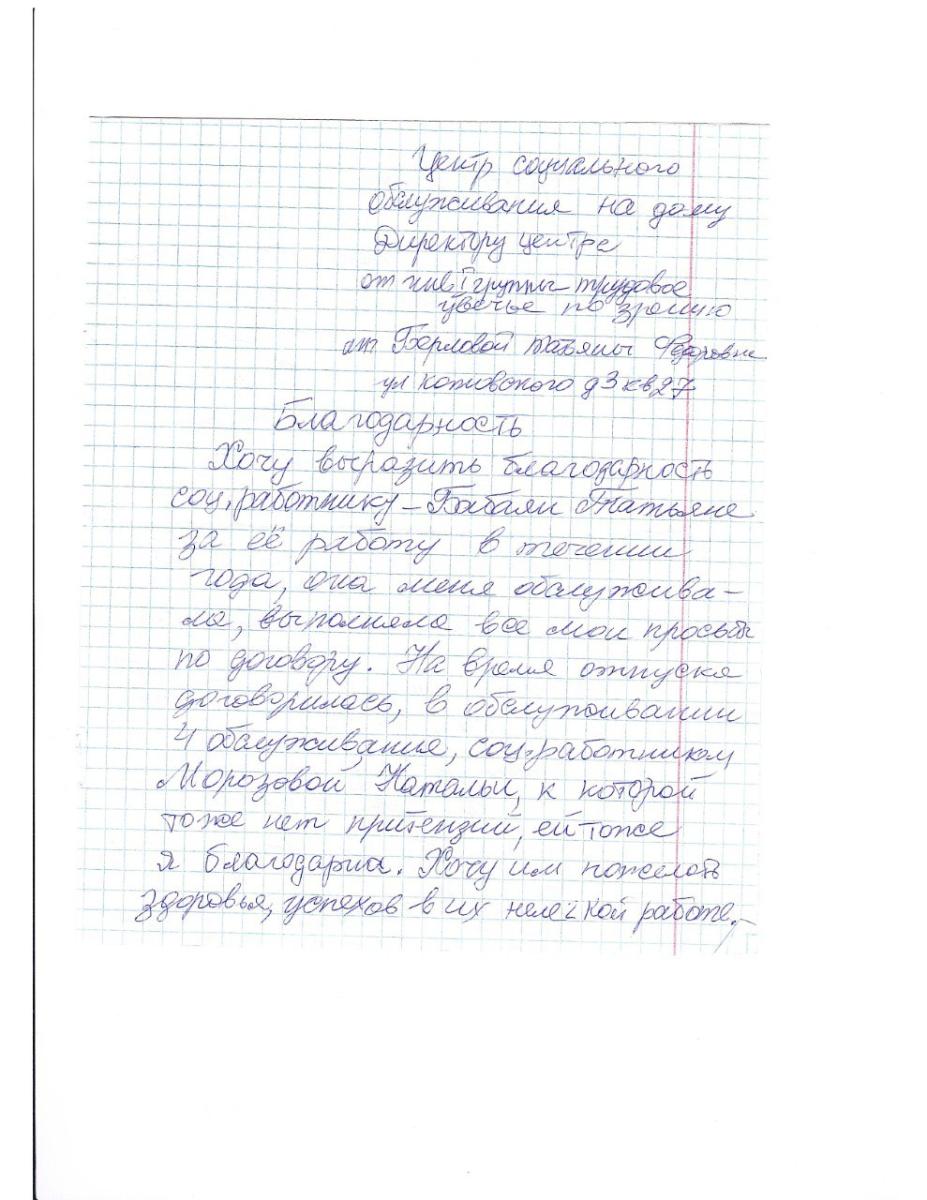 Центр социального
обслуживания на дому
Директору центра
от инв I группы трудовое
увечье по зрению
от Берловой Татьяны Федоровны
ул д 3 кв 27
Благодарность
Хочу выразить благодарность
соц. работнику – Бабаян Татьяне
за её работу в течении
года, она меня обслужива-
ла, выполняла все мои просьбы
по договору. На время отпуска
договорилась, в обслуживании
обслуживание, соц. работником
Морозовой Натальи, к которой
тоже нет притензий, ей тоже
я благодарна. Хочу им пожелать
здоровья, успехов в их нелегкой работе.